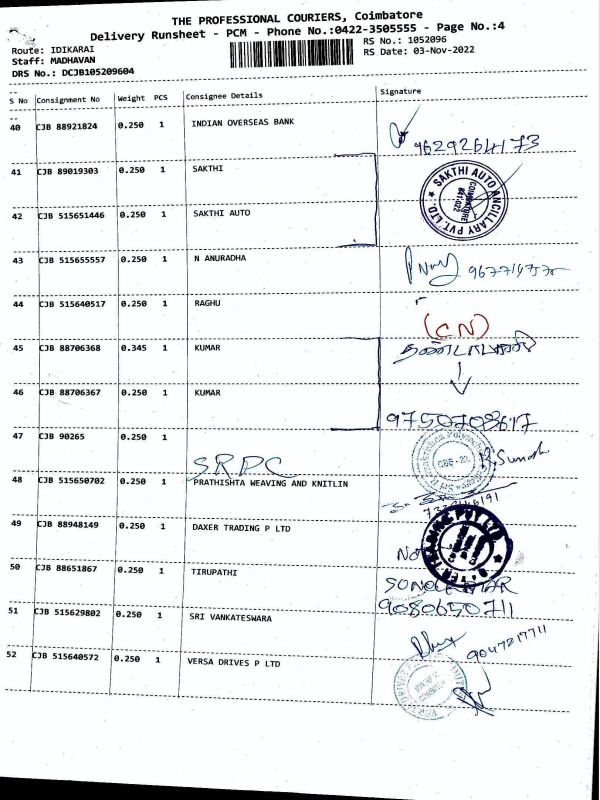 THE PROFESSIONAL COURIERS, Coimbatore
Delivery Runsheet - PCM - Phone No.:0422-3505555 - Page No.:4
Route: IDIKARAI
RS No.: 1052096
Staff: MADHAVAN
RS Date: 03-Nov-2022
DRS No.: DCJB105209604
S No Consignment No Weight PCS Consignee Details Signature
40 CJB 88921824 0.250 1 INDIAN OVERSEAS BANK
9629264173
41 CJB 89019303 0.250 1 SAKTHI
SAKTHI AUTO ANCILLARY PVT. LTD.
COIMBATORE
641 022
42 CJB 515651446 0.250 1 SAKTHI AUTO
43 CJB 515655557 0.250 1 N ANURADHA
44 CJB 515640517 0.250 1 RAGHU
(CN)
45 CJB 88706368 0.345 1 KUMAR
46 CJB 88706367 0.250 1 KUMAR
9750708617
47 CJB 90265 0.250 1
SRPC
48 CJB 515650702 0.250 1 PRATHISHTA WEAVING AND KNITLIN
49 CJB 88948149 0.250 1 DAXER TRADING P LTD
50 CJB 88651867 0.250 1 TIRUPATHI
9080650711
51 CJB 515629802 0.250 1 SRI VANKATESWARA
9047217711
52 CJB 515640572 0.250 1 VERSA DRIVES P LTD